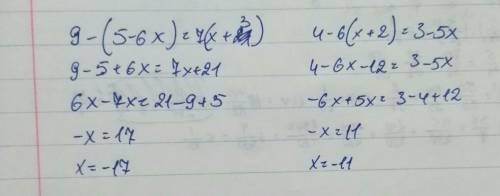 9-(5-6x)=7(x+3)
9-5+6x=7x+21
6x-7x=21-9+5
-x=17
x=-17
4-6(x+2)=3-5x
4-6x-12=3-5x
-6x+5x=3-4+12
-x=11
x=-11